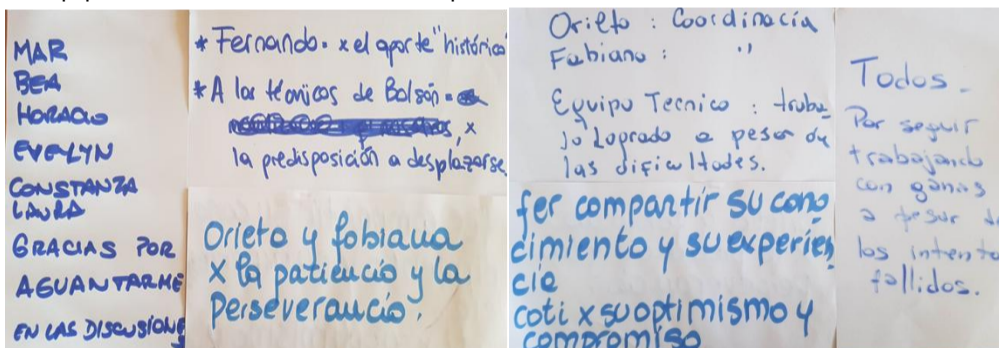 MAR
BEA
HORACIO
EVELYN
CONSTANZA
LAURA
GRACIAS POR
AGUANTARME
EN LAS DISCUSIONES
* Fernando. x el aporte "histórico"
* A los técnicos de Bolsón =
x
la predisposición a desplazarse
Orieta y fabiana
x la paciencia y la
Perseverancia.
Orieta : Coordinación
Fabiana : "
Equipo Tecnico : traba
jo logrado a pesar de
las dificultades.
fer compartir su cono
cimiento y su experien
cia
coti x su optimismo y
compromiso
Todos.
Por seguir
trabajando
con ganas
a pesar
los intento
fallidos.